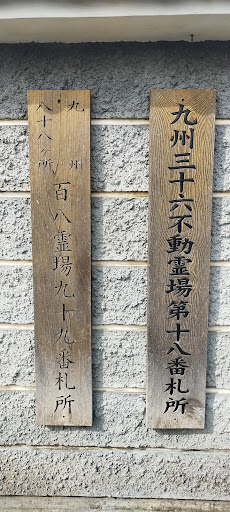 九州三十六不動霊場第十八番札所
九州
八十八ヶ所
百八霊場九十九番札所